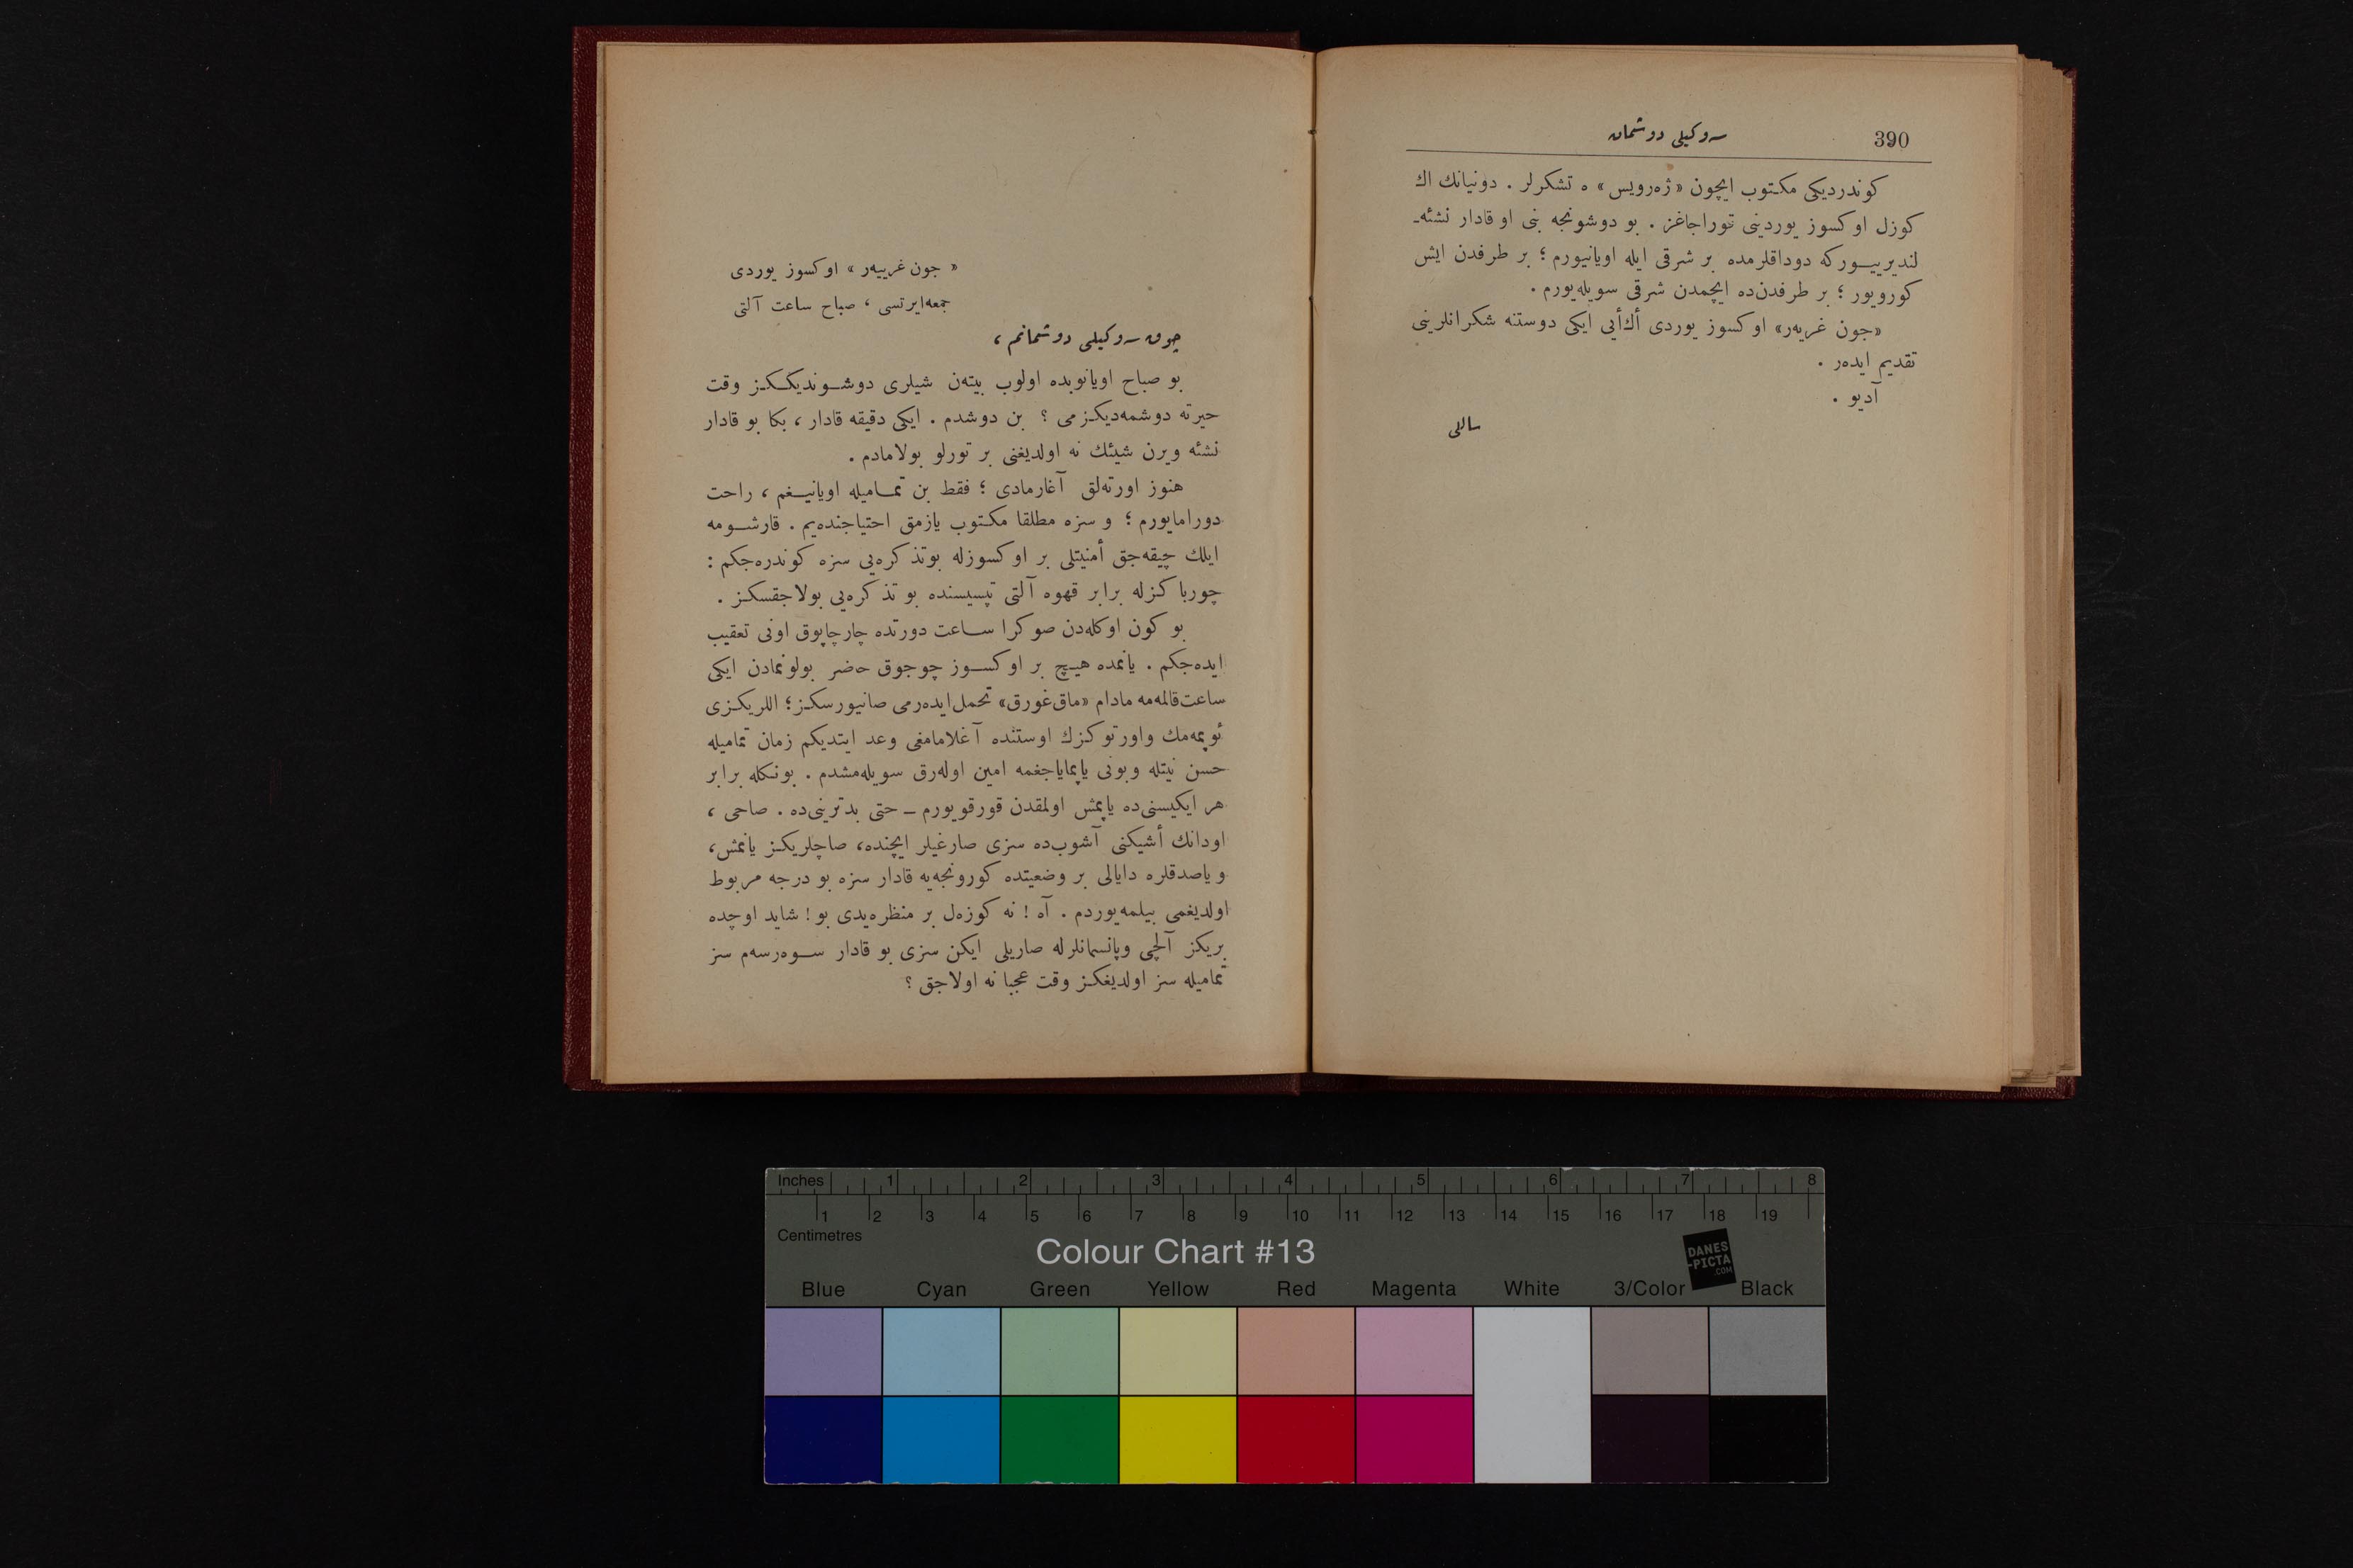 390
سه‌وكيلى دوشمان
كوندرديكى مكتوب ايچون «ژه‌رويس» ه تشكرلر . دونيانك اك
كوزل اوكسوز يوردينى قوراجاغز . بو دوشونجه بنى او قادار نشئه‌ـ
لنديرييـوركه دوداقلرمده بر شرقى ايله اويانيورم ؛ بر طرفدن ايش
كورويور ؛ بر طرفدن‌ده ايچمدن شرقى سويله‌يورم .
«جون غريه‌ر» اوكسوز يوردى أك‌أيى ايكى دوستنه شكرانلرينى
تقديم ايده‌ر .
آديو .
ساللى
« جون غرييه‌ر » اوكسوز يوردى
جمعه‌ايرتسى ، صباح ساعت آلتى
چوق سه‌وكيلى دوشمانم ،
بو صباح اويانوبده اولوب بيته‌ن شيلرى دوشـونديكـكـز وقت
حيرته دوشمه‌ديكـزمى ؟ بن دوشدم . ايكى دقيقه قادار ، بكا بو قادار
نشئه ويرن شيئك نه اولديغنى بر تورلو بولامادم .
هنوز اورته‌لق آغارمادى ؛ فقط بن تمـاميله اويانيـغم ، راحت
دورامايورم ؛ و سزه مطلقا مكـتوب يازمق احتياجنده‌يم . قارشـومه
ايلك چيقه‌جق أمنيتلى بر اوكسوزله بوتذكره‌يى سزه كوندره‌جكم :
چورباكزله برابر قهوه آلتى تپسيسنده بو تذكره‌يى بولاجقسكـز .
بو كون اوكله‌دن صوكرا سـاعت دورتده چارچاپوق اونى تعقيب
ايده‌جكم . يانمده هيـچ بر اوكسـوز چوجوق حاضر بولونمادن ايكى
ساعت‌قالمه‌مه مادام «ماق‌غورق» تحمل‌ايده‌رمى صانيورسكـز؛ اللريكـزى
ئوپمه‌مك واورتوكزك اوستنده آغلامامغى وعد ايتديكم زمان تماميله
حسن نيتله وبونى ياپماياجغمه امين اوله‌رق سويله‌مشدم . بونكله برابر
هر ايكيسنى‌ده ياپمش اولمقدن قورقويورم ـ حتى بدترينى‌ده . صاحى ،
اودانك أشيكنى آشوب‌ده سزى صارغيلر ايچنده، صاچلريكـز يانمش،
و ياصدقلره دايالى بر وضعيتده كورونجه‌يه قادار سزه بو درجه مربوط
اولديغمى بيلمه‌يوردم . آه ! نه كوزه‌ل بر منظره‌يدى بو ! شايد اوچده
بريكز آلچى وپانسمانلرله صاريلى ايكن سزى بو قادار سـوه‌رسه‌م سز
تماميله سز اولديغكـز وقت عجبا نه اولاجق ؟
Inches 1 2 3 4 5 6 7 8
1 2 3 4 5 6 7 8 9 10 11 12 13 14 15 16 17 18 19
Centimetres
Colour Chart #13
DANES
-PICTA
.COM
Blue Cyan Green Yellow Red Magenta White 3/Color Black